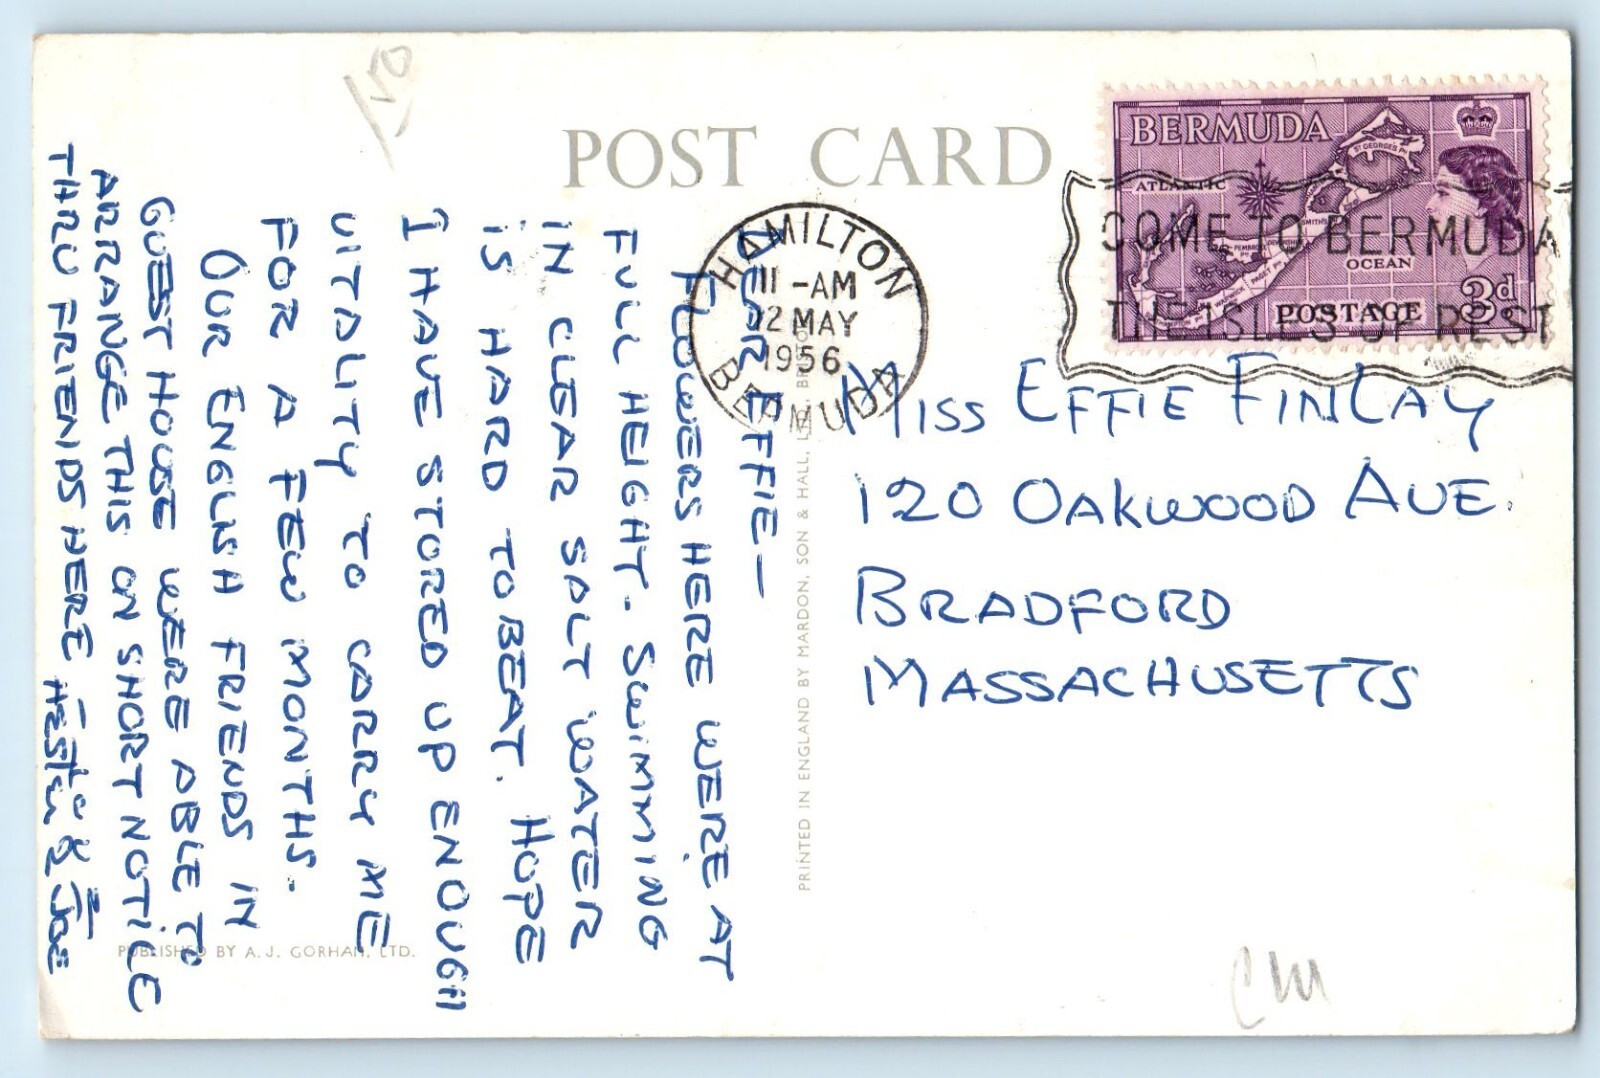 150
POST CARD
BERMUDA
ATLANTIC
OCEAN
ST GEORGE'S
POSTAGE 3d
HAMILTON
11-AM
12 MAY
1956
BERMUDA
COME TO BERMUDA
THE ISLES OF REST
DEAR EFFIE—
FLOWERS HERE WERE AT
FULL HEIGHT. SWIMMING
IN CLEAR SALT WATER
IS HARD TO BEAT. HOPE
I HAVE STORED UP ENOUGH
VITALITY TO CARRY ME
FOR A FEW MONTHS.
OUR ENGLISH FRIENDS IN
GUEST HOUSE WERE ABLE TO
ARRANGE THIS ON SHORT NOTICE
THRU FRIENDS HERE
& JOE
MISS EFFIE FINLAY
120 OAKWOOD AVE.
BRADFORD
MASSACHUSETTS
PRINTED IN ENGLAND BY MARDON, SON & HALL, LTD., BRISTOL
PUBLISHED BY A. J. GORHAM, LTD.
CM